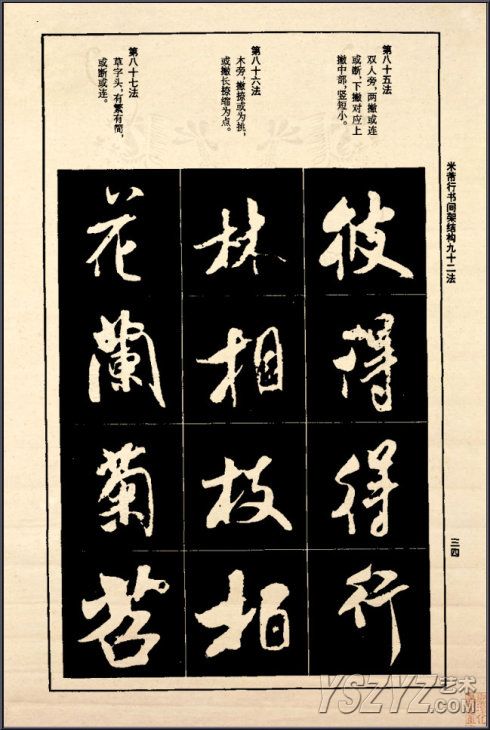 米芾行书间架结构九十二法
第八十五法
双人旁，两撇或连
或断，下撇对应上
撇中部，竖短小。
彼
得
得
行
第八十六法
木旁，撇捺或为挑，
或撇长捺缩为点。
林
相
枝
柏
第八十七法
草字头，有繁有简，
或断或连。
花
兰
菊
苕
三四
YSZYZ艺术
.com